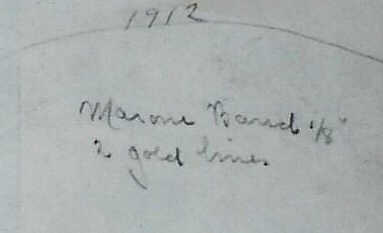 1912
Marone Band 1/8"
2 gold lines